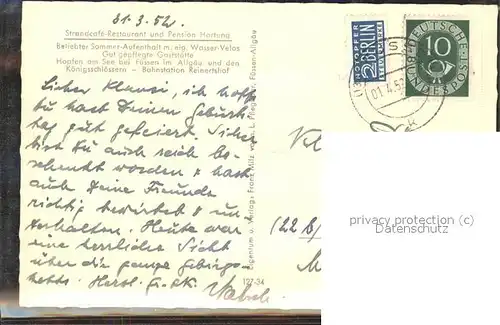 31.3.52.
Strandcafé-Restaurant und Pension Hartung
Beliebter Sommer-Aufenthalt m. eig. Wasser-Velos
Gut gepflegte Gaststätte
Hopfen am See bei Füssen im Allgäu und den
Königsschlössern - Bahnstation Reinertshof
Lieber Klausi, ich hoffe
du hast Deinen Geburts-
tag gut gefeiert. Sicher
bist du auch reich be-
schenkt worden & hast
auch Deine Freunde
richtig bewirtet & un-
terhalten. Heute war
eine herrliche Sicht
über die ganze Gebirgs-
kette. Herzl.
Eigentum u. Verlag: Franz Milz
Füssen-Allgäu
127-34
NOTOPFER
2 BERLIN
STEUERMARKE
DEUTSCHE
10
BUNDESPOST
(22 b)
privacy protection (c)
Datenschutz